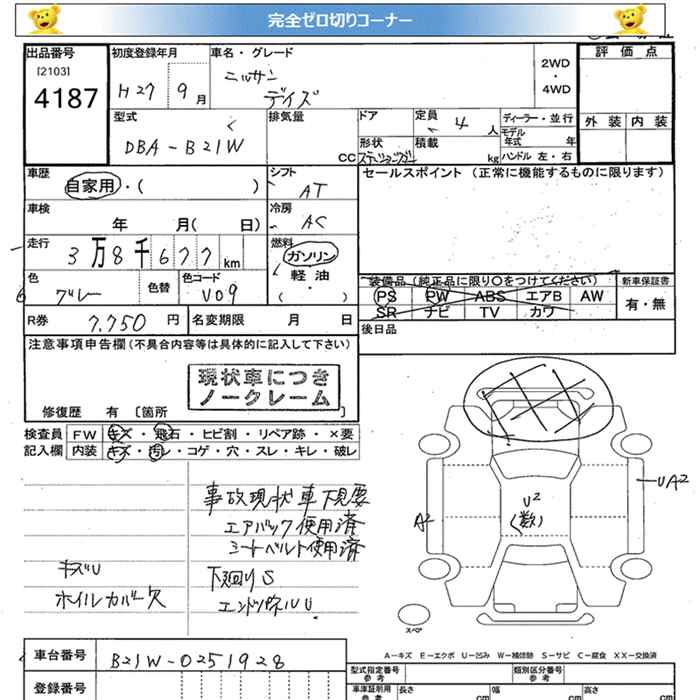 完全ゼロ切りコーナー
出品番号 初度登録年月 車名・グレード 評価点
[2103] ニッサン 2WD
4187 H27 9月 デイズ 4WD
型式 排気量 ドア 定員 4人 ディーラー・並行 外装 内装
DBA-B21W モデル年式 年
CC 形状 積載 kg ハンドル 左・右
車歴 シフト セールスポイント(正常に機能するものに限ります)
自家用・( ) AT
車検 冷房
年 月( 日) AC
走行 燃料
3万8千677km ガソリン
軽油
( )
色 色替 色コード 装備品(純正品に限り○をつけてください) 新車保証書
グレー V09 PS PW ABS エアB AW 有・無
SR ナビ TV カワ
R券 7,750円 名変期限 月 日 後日品
注意事項申告欄(不具合内容等は具体的に記入して下さい)
現状車につき
ノークレーム
修復歴 有 [箇所 ]
検査員 FW キズ・飛石・ヒビ割・リペア跡・×要
記入欄 内装 キズ・汚レ・コゲ・穴・スレ・キレ・破レ
事故現状車下見要
エアバック使用済
シートベルト使用済
キズU 下廻りS
ホイルカバー欠 エンドパネルU
U²
(数)
A2
UA2
スペア
A-キズ E-エクボ U-凹み W-補修跡 S-サビ C-腐食 XX-交換済
車台番号 B21W-0251928 型式指定番号 類別区分番号
参考 参考
登録番号 車庫証明用 長さ cm 幅 cm 高さ cm
参考